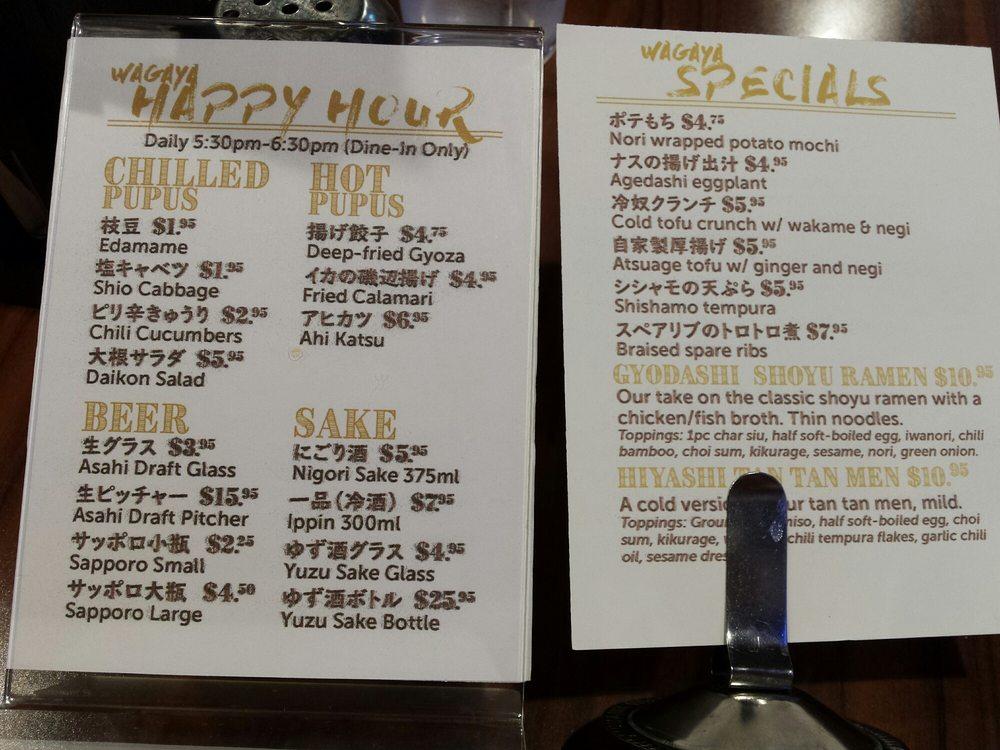 WAGAYA
HAPPY HOUR
Daily 5:30pm-6:30pm (Dine-in Only)
CHILLED
PUPUS
枝豆 $1.95
Edamame
塩キャベツ $1.95
Shio Cabbage
ピリ辛きゅうり $2.95
Chili Cucumbers
大根サラダ $5.95
Daikon Salad
HOT
PUPUS
揚げ餃子 $4.75
Deep-fried Gyoza
イカの磯辺揚げ $4.95
Fried Calamari
アヒカツ $6.95
Ahi Katsu
BEER
生グラス $3.95
Asahi Draft Glass
生ピッチャー $15.95
Asahi Draft Pitcher
サッポロ小瓶 $2.25
Sapporo Small
サッポロ大瓶 $4.50
Sapporo Large
SAKE
にごり酒 $5.95
Nigori Sake 375ml
一品(冷酒) $7.95
Ippin 300ml
ゆず酒グラス $4.95
Yuzu Sake Glass
ゆず酒ボトル $25.95
Yuzu Sake Bottle
WAGAYA
SPECIALS
ポテもち $4.75
Nori wrapped potato mochi
ナスの揚げ出汁 $4.95
Agedashi eggplant
冷奴クランチ $5.95
Cold tofu crunch w/ wakame & negi
自家製厚揚げ $5.95
Atsuage tofu w/ ginger and negi
シシャモの天ぷら $5.95
Shishamo tempura
スペアリブのトロトロ煮 $7.95
Braised spare ribs
GYODASHI SHOYU RAMEN $10.95
Our take on the classic shoyu ramen with a
chicken/fish broth. Thin noodles.
Toppings: 1pc char siu, half soft-boiled egg, iwanori, chili
bamboo, choi sum, kikurage, sesame, nori, green onion.
HIYASHI TAN TAN MEN $10.95
A cold tan tan men, mild.
Toppings: half soft-boiled egg, choi
sum, kikurage, chili tempura flakes, garlic chili
oil, sesame